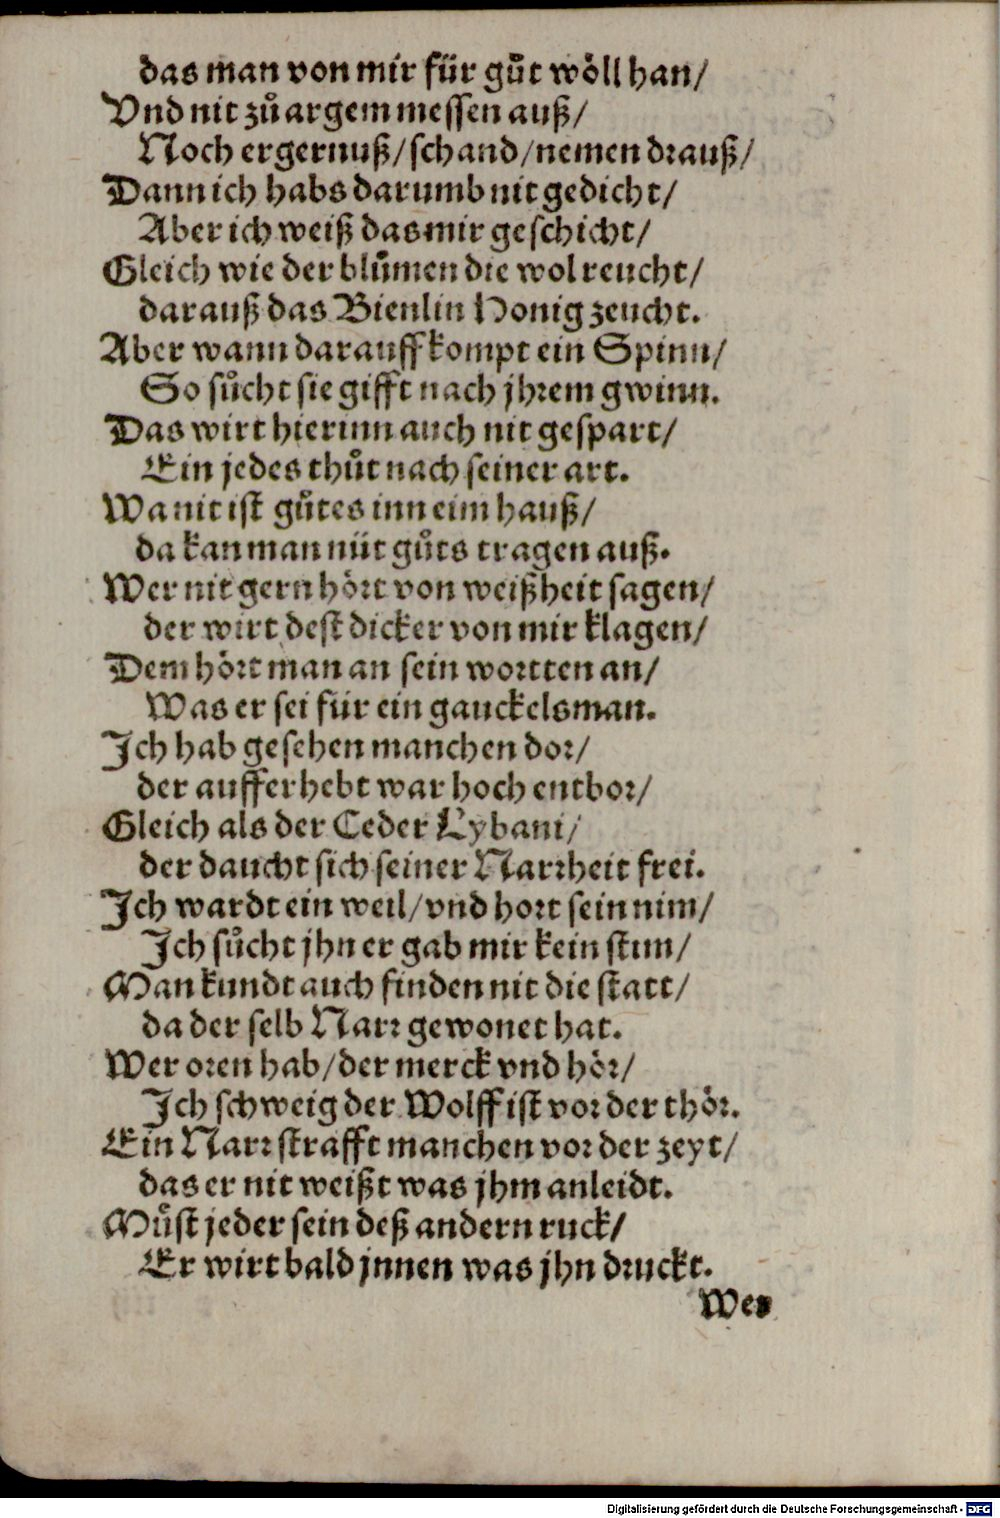 das man von mir für gůt wöll han/
Vnd nit zů argem messen auß/
Noch ergernuß/schand/nemen drauß/
Dann ich habs darumb nit gedicht/
Aber ich weiß das mir geschicht/
Gleich wie der blůmen die wol reucht/
darauß das Bienlin Honig zeucht.
Aber wann darauff kompt ein Spinn/
So sůcht sie gifft nach jhrem gwinn.
Das wirt hierinn auch nit gespart/
Ein jedes thůt nach seiner art.
Wa nit ist gůtes inn eim hauß/
da kan man nüt gůts tragen auß.
Wer nit gern hört von weißheit sagen/
der wirt dest dicker von mir klagen/
Dem hört man an sein wortten an/
Was er sei für ein gauckelsman.
Ich hab gesehen manchen dor/
der auff erhebt war hoch entbor/
Gleich als der Ceder Lybani/
der daucht sich seiner Narrheit frei.
Ich wardt ein weil/vnd hort sein nim/
Ich sůcht jhn er gab mir kein stim/
Man kundt auch finden nit die statt/
da der selb Narr gewonet hat.
Wer oren hab/der merck vnd hör/
Ich schweig der Wolff ist vor der thör.
Ein Narr strafft manchen vor der zeyt/
das er nit weißt was jhm anleidt.
Můst jeder sein deß andern ruck/
Er wirt bald jnnen was jhn druckt.
Wer
Digitalisierung gefördert durch die Deutsche Forschungsgemeinschaft - DFG